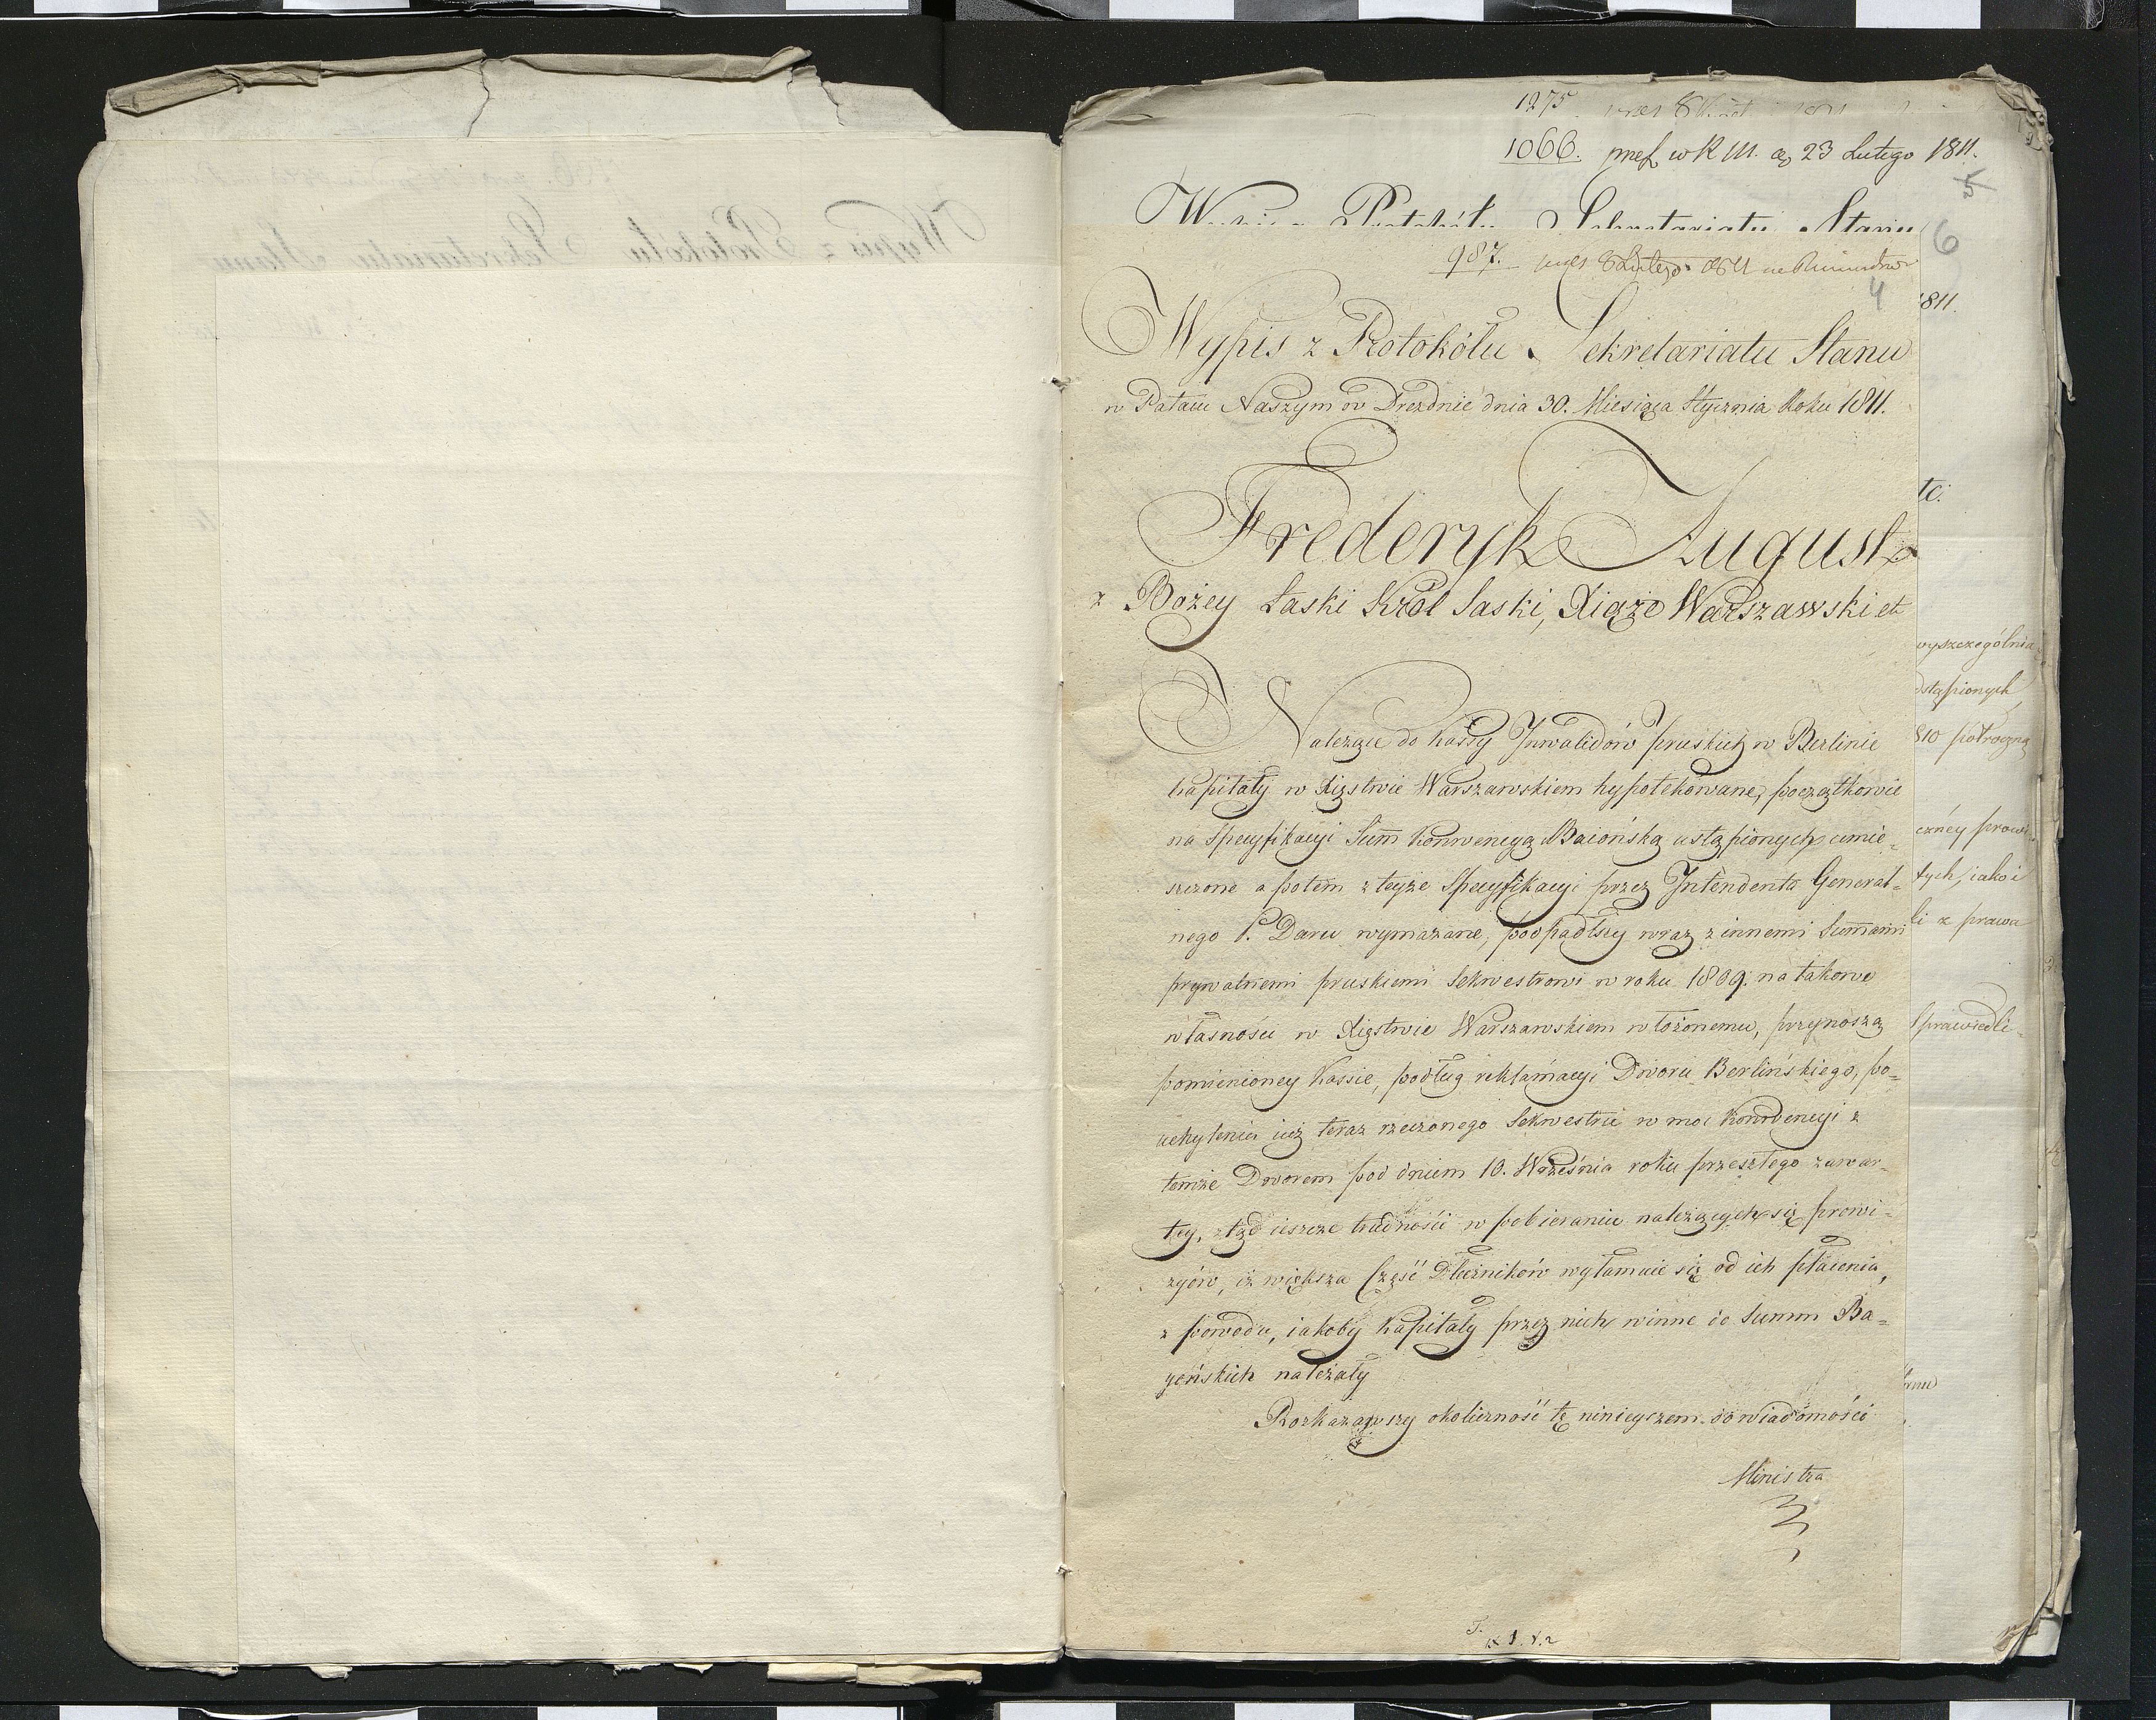 1275
1066. w R M. 23 Lutego 1811.
5
6
Wypis z Protokółu Sekretariatu Stanu
987. 8 Lutego
4
1811.
Wypis z Protokółu Sekretariatu Stanu
w Pałacu Naszym w Dreznie dnia 30. Miesiąca Stycznia Roku 1811.
tc.
Frederyk August
z Bożey Łaski Król Saski, Xiąże Warszawski et
wyszczególnia
dstąpionych
Należące do Kassy Inwalidów pruskich w Berlinie
810 półroczną
kapitały w Xięstwie Warszawskiem hypotekowane, początkowie
na specyfikacyi Sum Konwencyą Baiońską ustąpionych umie=
czney prowi=
szczone a potem z teyże specyfikacyi przez Intendenta General=
tych, iako i
nego P. Daru wymazane, podpadłszy wraz z innemi Summami
li z prawa
prywatnemi pruskiemi Sekwestrowi w roku 1809. na takowe
własności w Xięstwie Warszawskiem włożonemu, przynoszą
Sprawiedli=
pomienioney Kassie, podług reklamacyi Dworu Berlińskiego, po=
uchyleniu iuż teraz rzeczonego Sekwestru w moc Konwencyi z
temże Dworem pod dniem 10. Września roku przeszłego zawar=
tey, ztąd ieszcze trudności w pobieraniu należących się prowi=
zyów, iż większa Część Dłużników wyłamuie się od ich płacenia,
z powodu, iakoby Kapitały przez nich winne do Summ Ba=
yońskich należały
Rozkazawszy okoliczność tę ninieyszem do wiadomości
Ministra